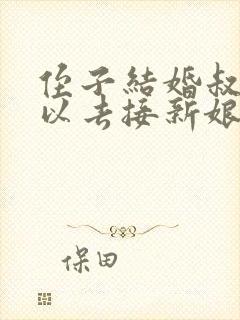 侄子結婚叔
以去接新娘
保田